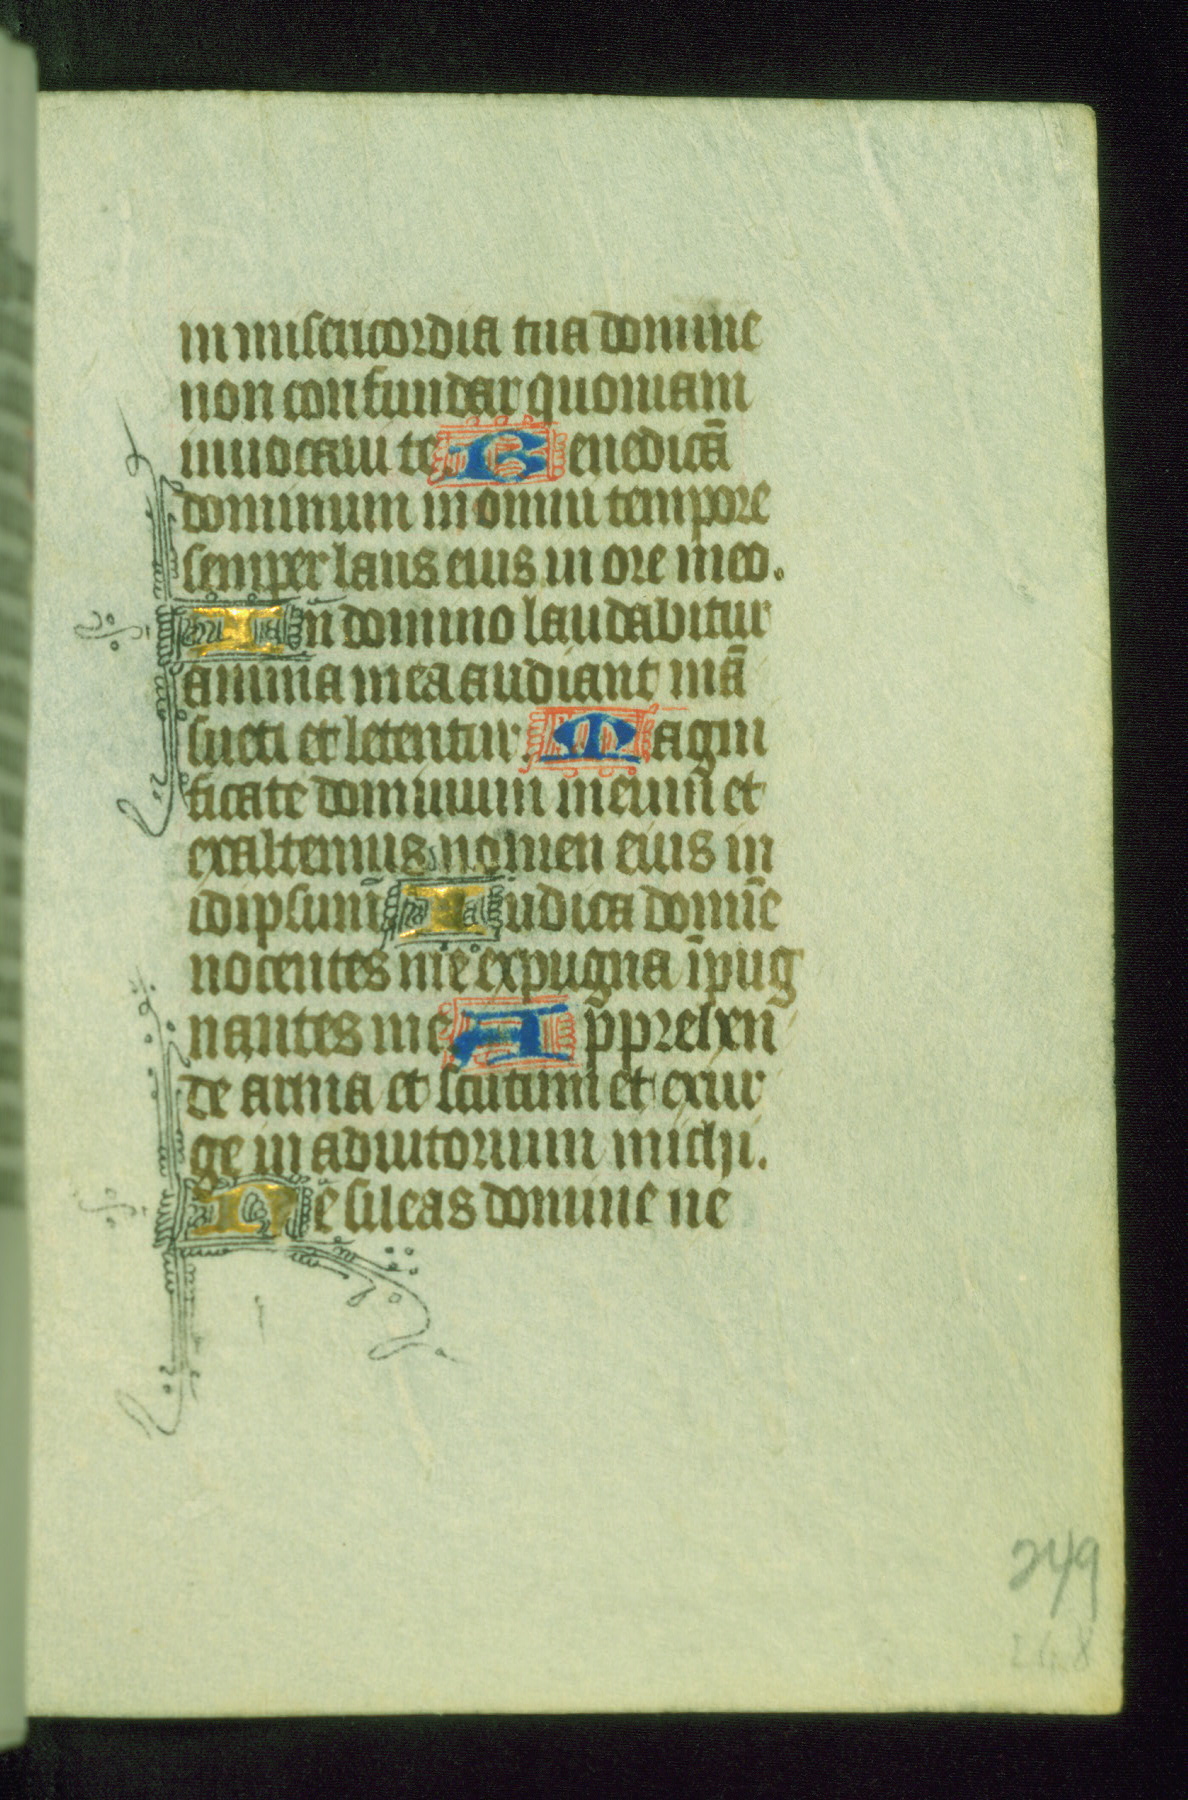 in misericordia tua domine
non confundar quoniam
inuocaui te Benedicā
dominum in omni tempore
semper laus eius in ore meo.
In domino laudabitur
anima mea audiant mā
sueti et letentur. Magni
ficate dominum meum et
exaltemus nomen eius in
idipsum Iudica domīe
nocentes me expugna īpug
nantes me Apprehen
de arma et scutum et exur
ge in adiutorium michi.
Ne sileas domine ne
249
248